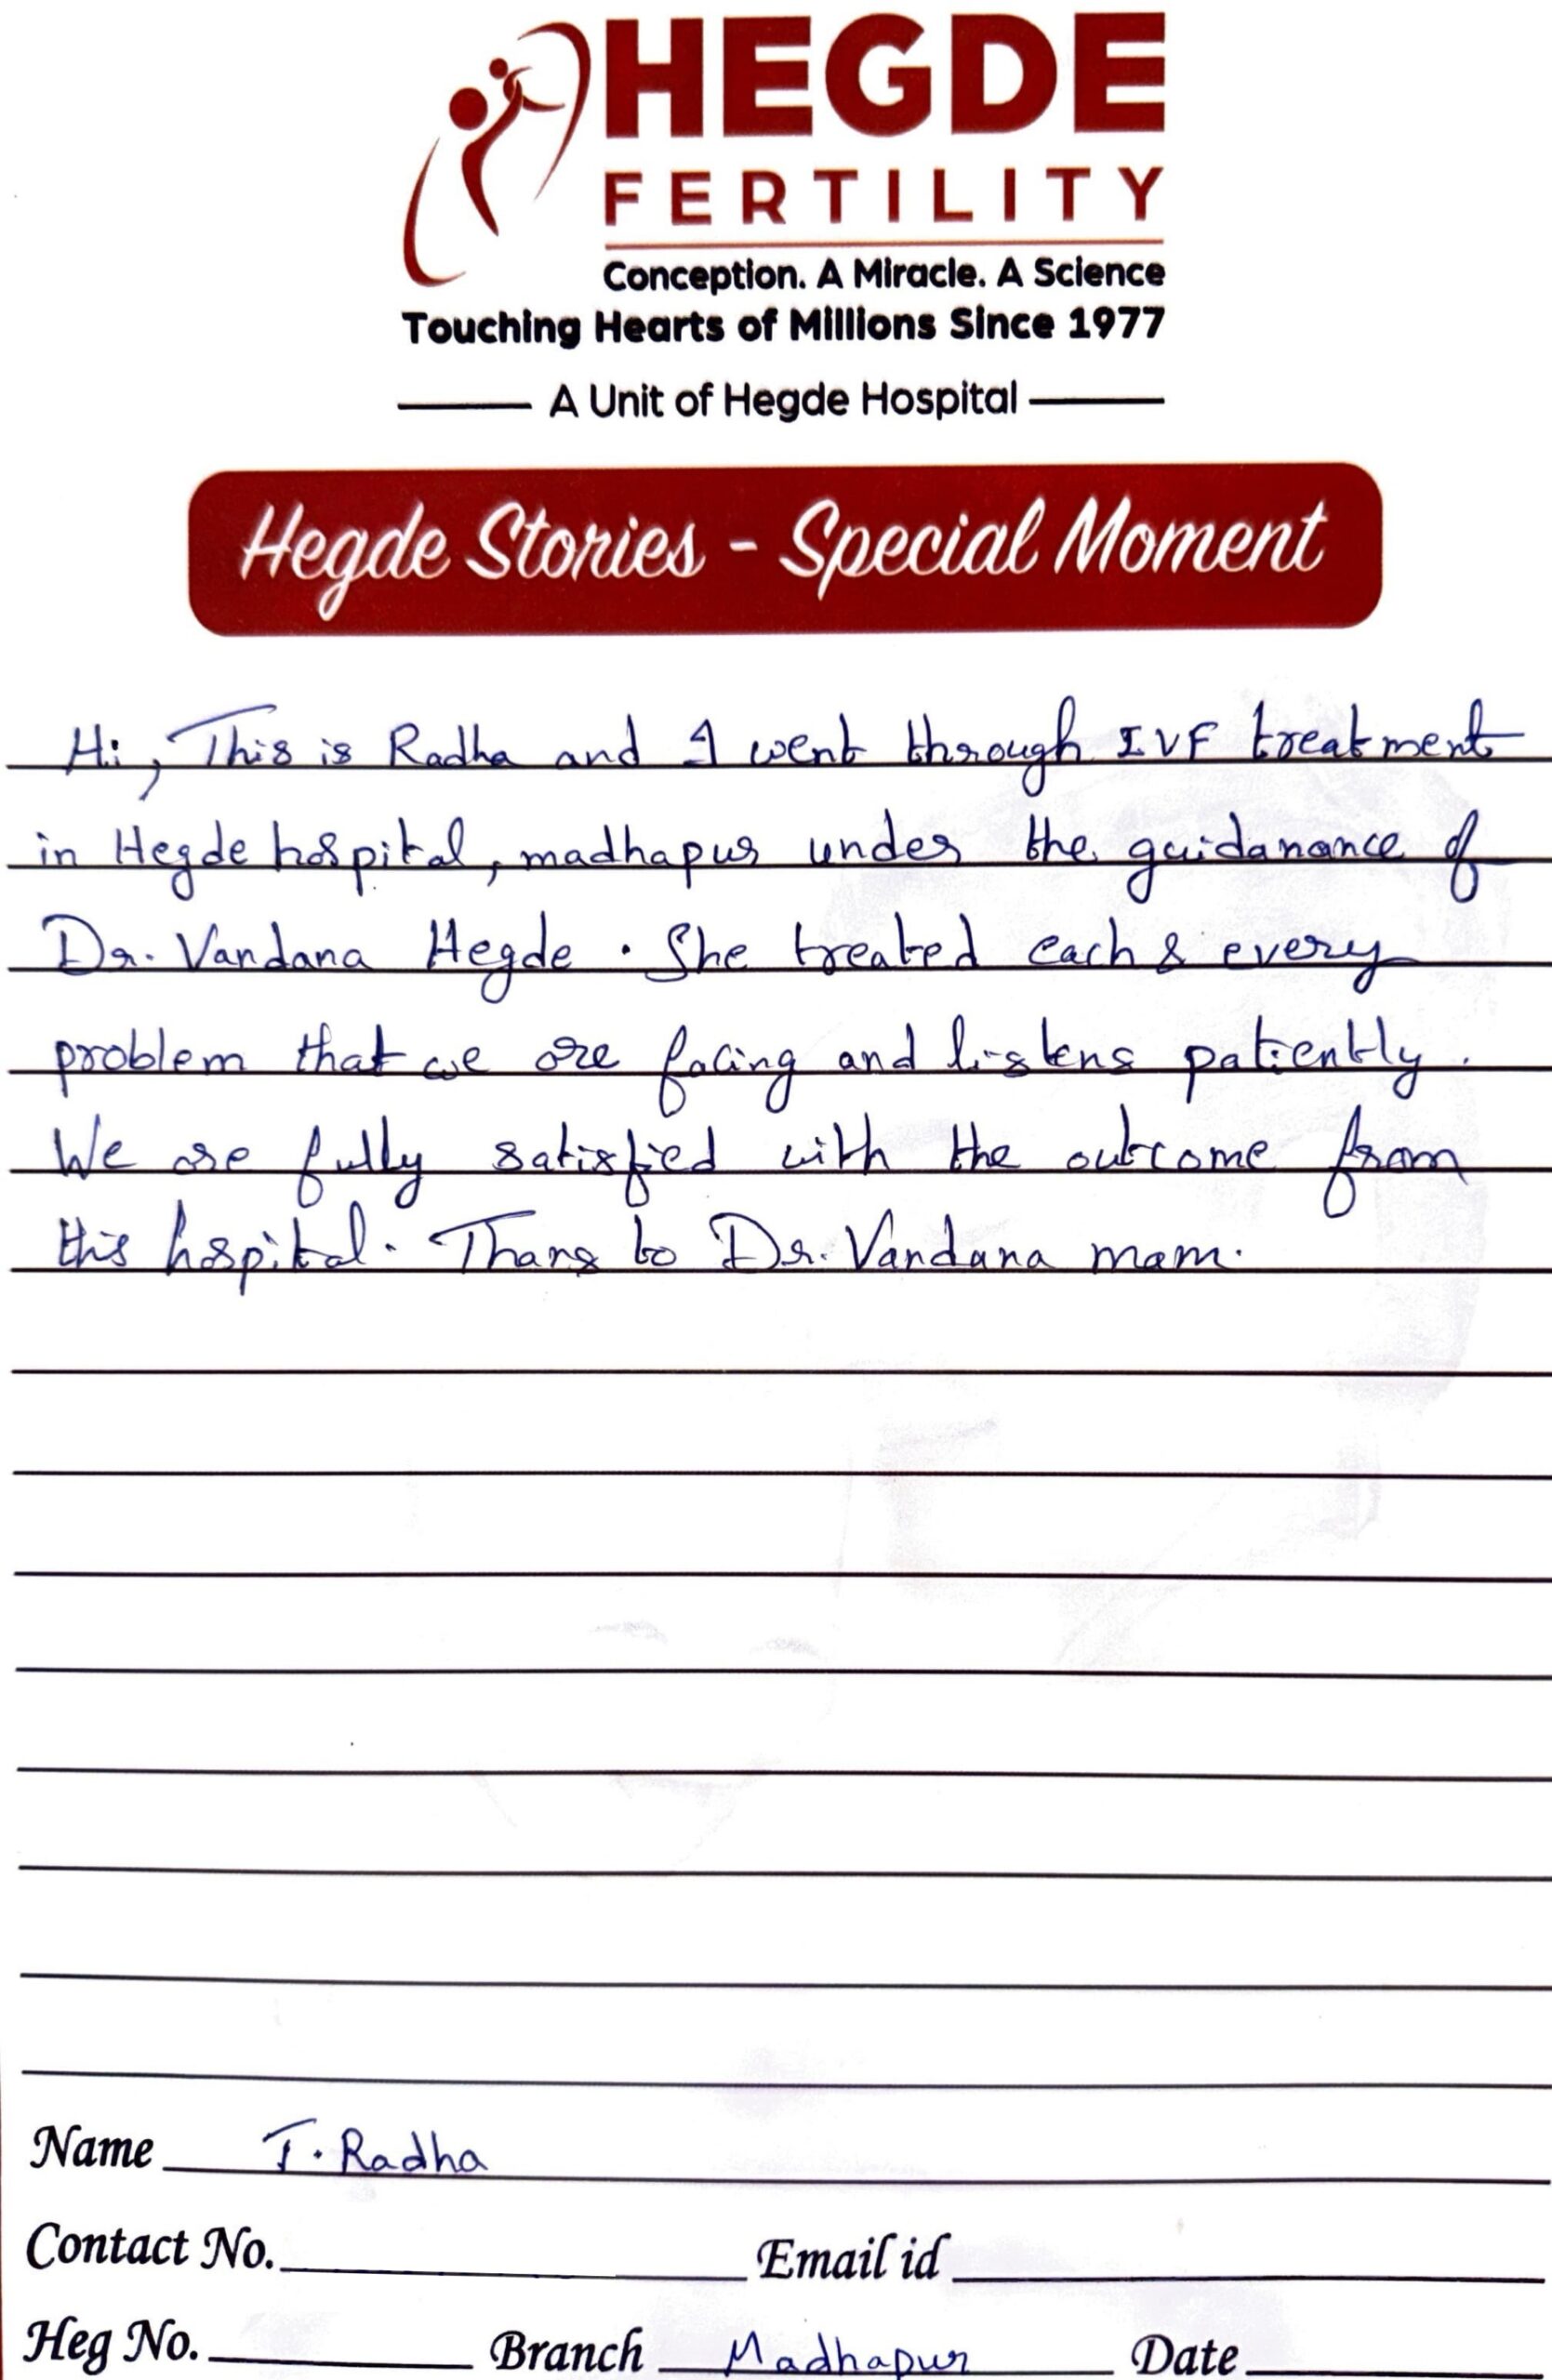 HEGDE
FERTILITY
Conception. A Miracle. A Science
Touching Hearts of Millions Since 1977
A Unit of Hegde Hospital
Hegde Stories - Special Moment
Hi, This is Radha and I went through IVF treatment
in Hegde hospital, madhapur under the guidanance of
Dr. Vandana Hegde . She treated each & every
problem that we are facing and listens patiently.
We are fully satisfied with the outcome from
this hospital. Thans to Dr. Vandana mam.
Name T. Radha
Contact No. Email id
Heg No. Branch Madhapur Date